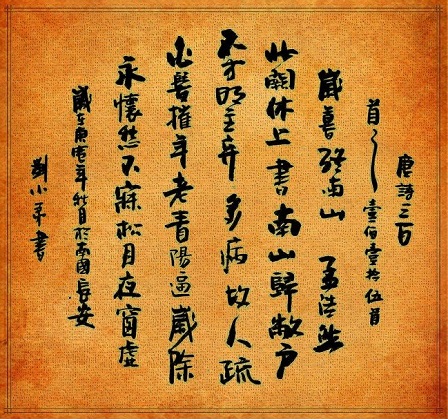 唐詩三百
首之一 壹佰壹拾伍首
歲暮歸南山 孟浩然
北闕休上書南山歸敝戶
不才明主棄多病故人疏
白髮催年老青陽逼歲除
永懷愁不寐松月夜窗虛
歲在庚寅年秋月於國長安
劉小平書